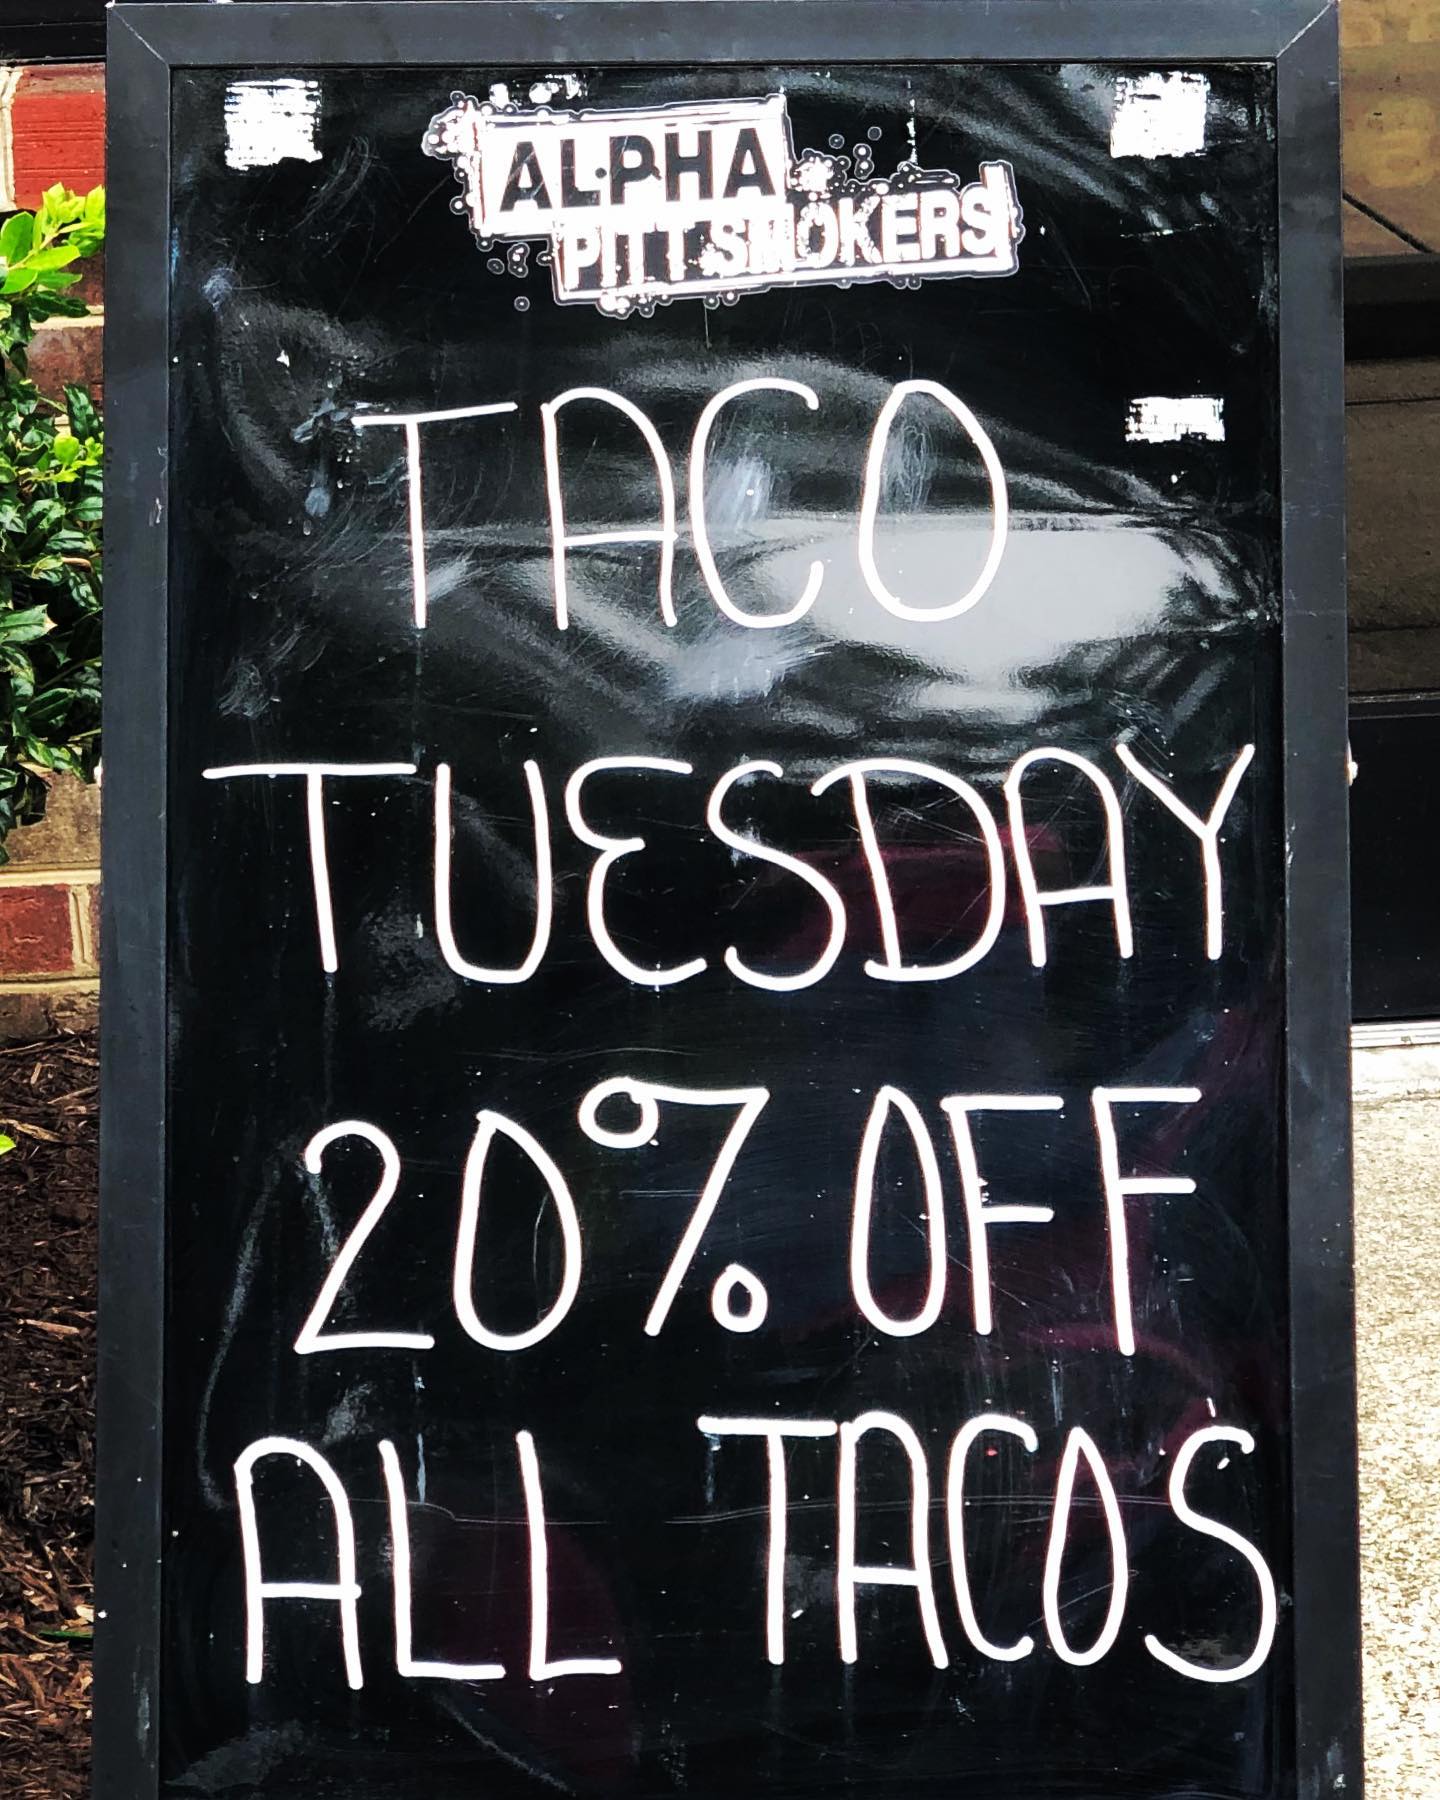 ALPHA
PITT SMOKERS
TACO
TUESDAY
20% OFF
ALL TACOS